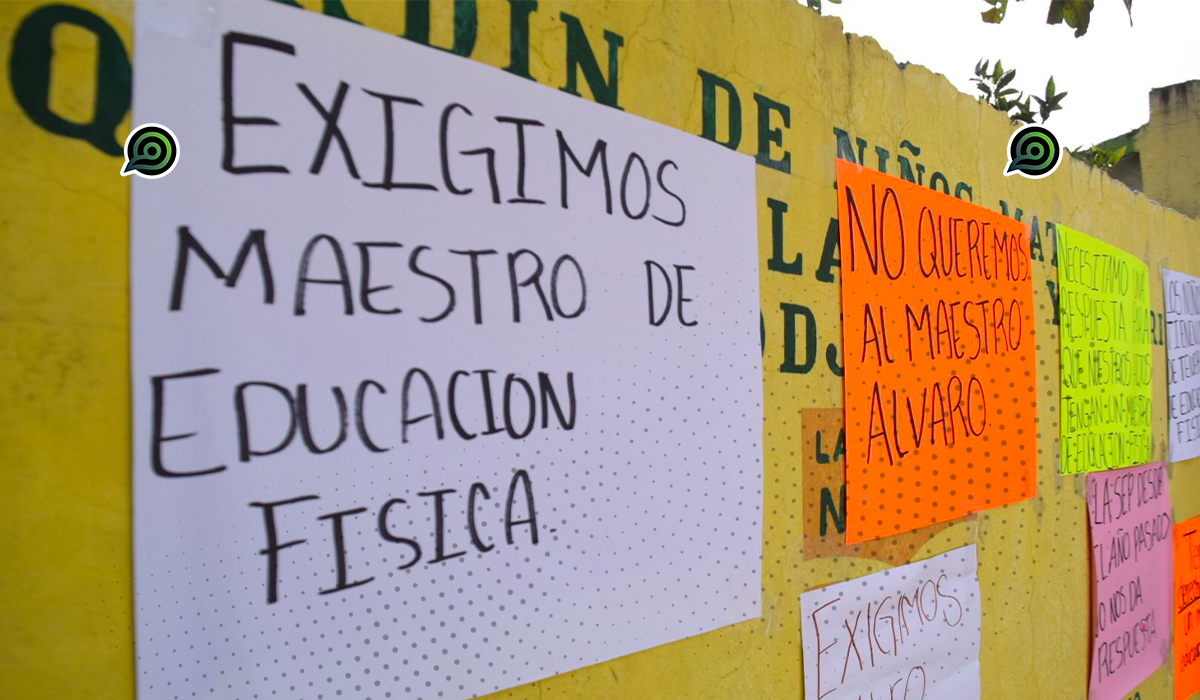 JARDIN DE NIÑOS
EXIGIMOS
MAESTRO DE
EDUCACION
FISICA.
NO QUEREMOS
AL MAESTRO
ALVARO
NECESITAMO UN
RESPUESTA PARA
QUE NUESTROS HIJOS
TENGAN-UN-MAESTRO
DE EDUCACION-FISICA
LA SEP DESDE
EL AÑO PASADO
NO NOS DA
RESPUESTA
EXIGIMOS